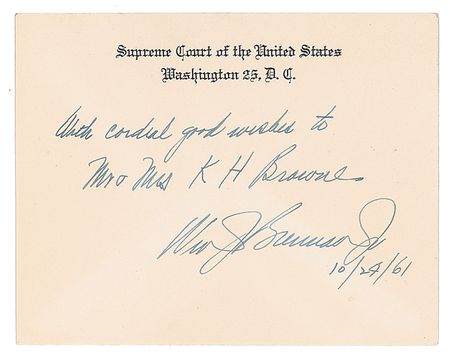 Supreme Court of the United States
Washington 25, D. C.
With cordial good wishes to
Mr & Mrs K H Browne
Wm J Brennan Jr
10/24/61